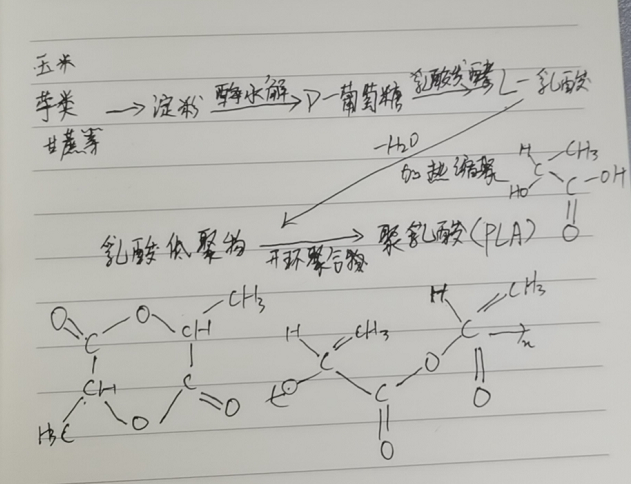 玉米
芋类 → 淀粉 酶水解 D-葡萄糖 乳酸发酵 L-乳酸
甘蔗等
-H2O
加热缩聚
H CH3
C
HO C-OH
O
乳酸低聚物 开环聚合物 聚乳酸(PLA)
CH3
O O CH
C
CH C
O O
H3C
H CH3
C
O C O
O
H CH3
C
O n